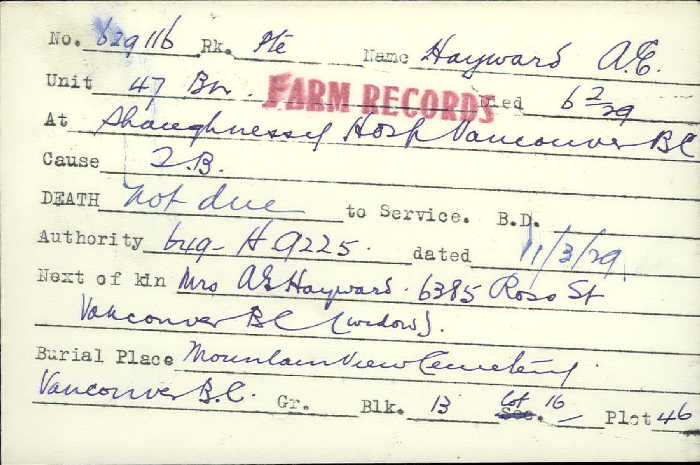 No. 629116 Rk. Pte Name Hayward A.E.
Unit 47 Bn. FARM RECORDS Died 6 2/29
At Shaughnessy Hosp Vancouver BC
Cause T.B.
DEATH not due to Service. B.D.
Authority 649-H 9225. dated 11/3/29.
Next of kin Mrs AE Hayward. 6385 Ross St
Vancouver BC (widow).
Burial Place Mountain View Cemetery.
Vancouver B.C. Gr. Blk. 13 Lot Sec. 16 Plot 46